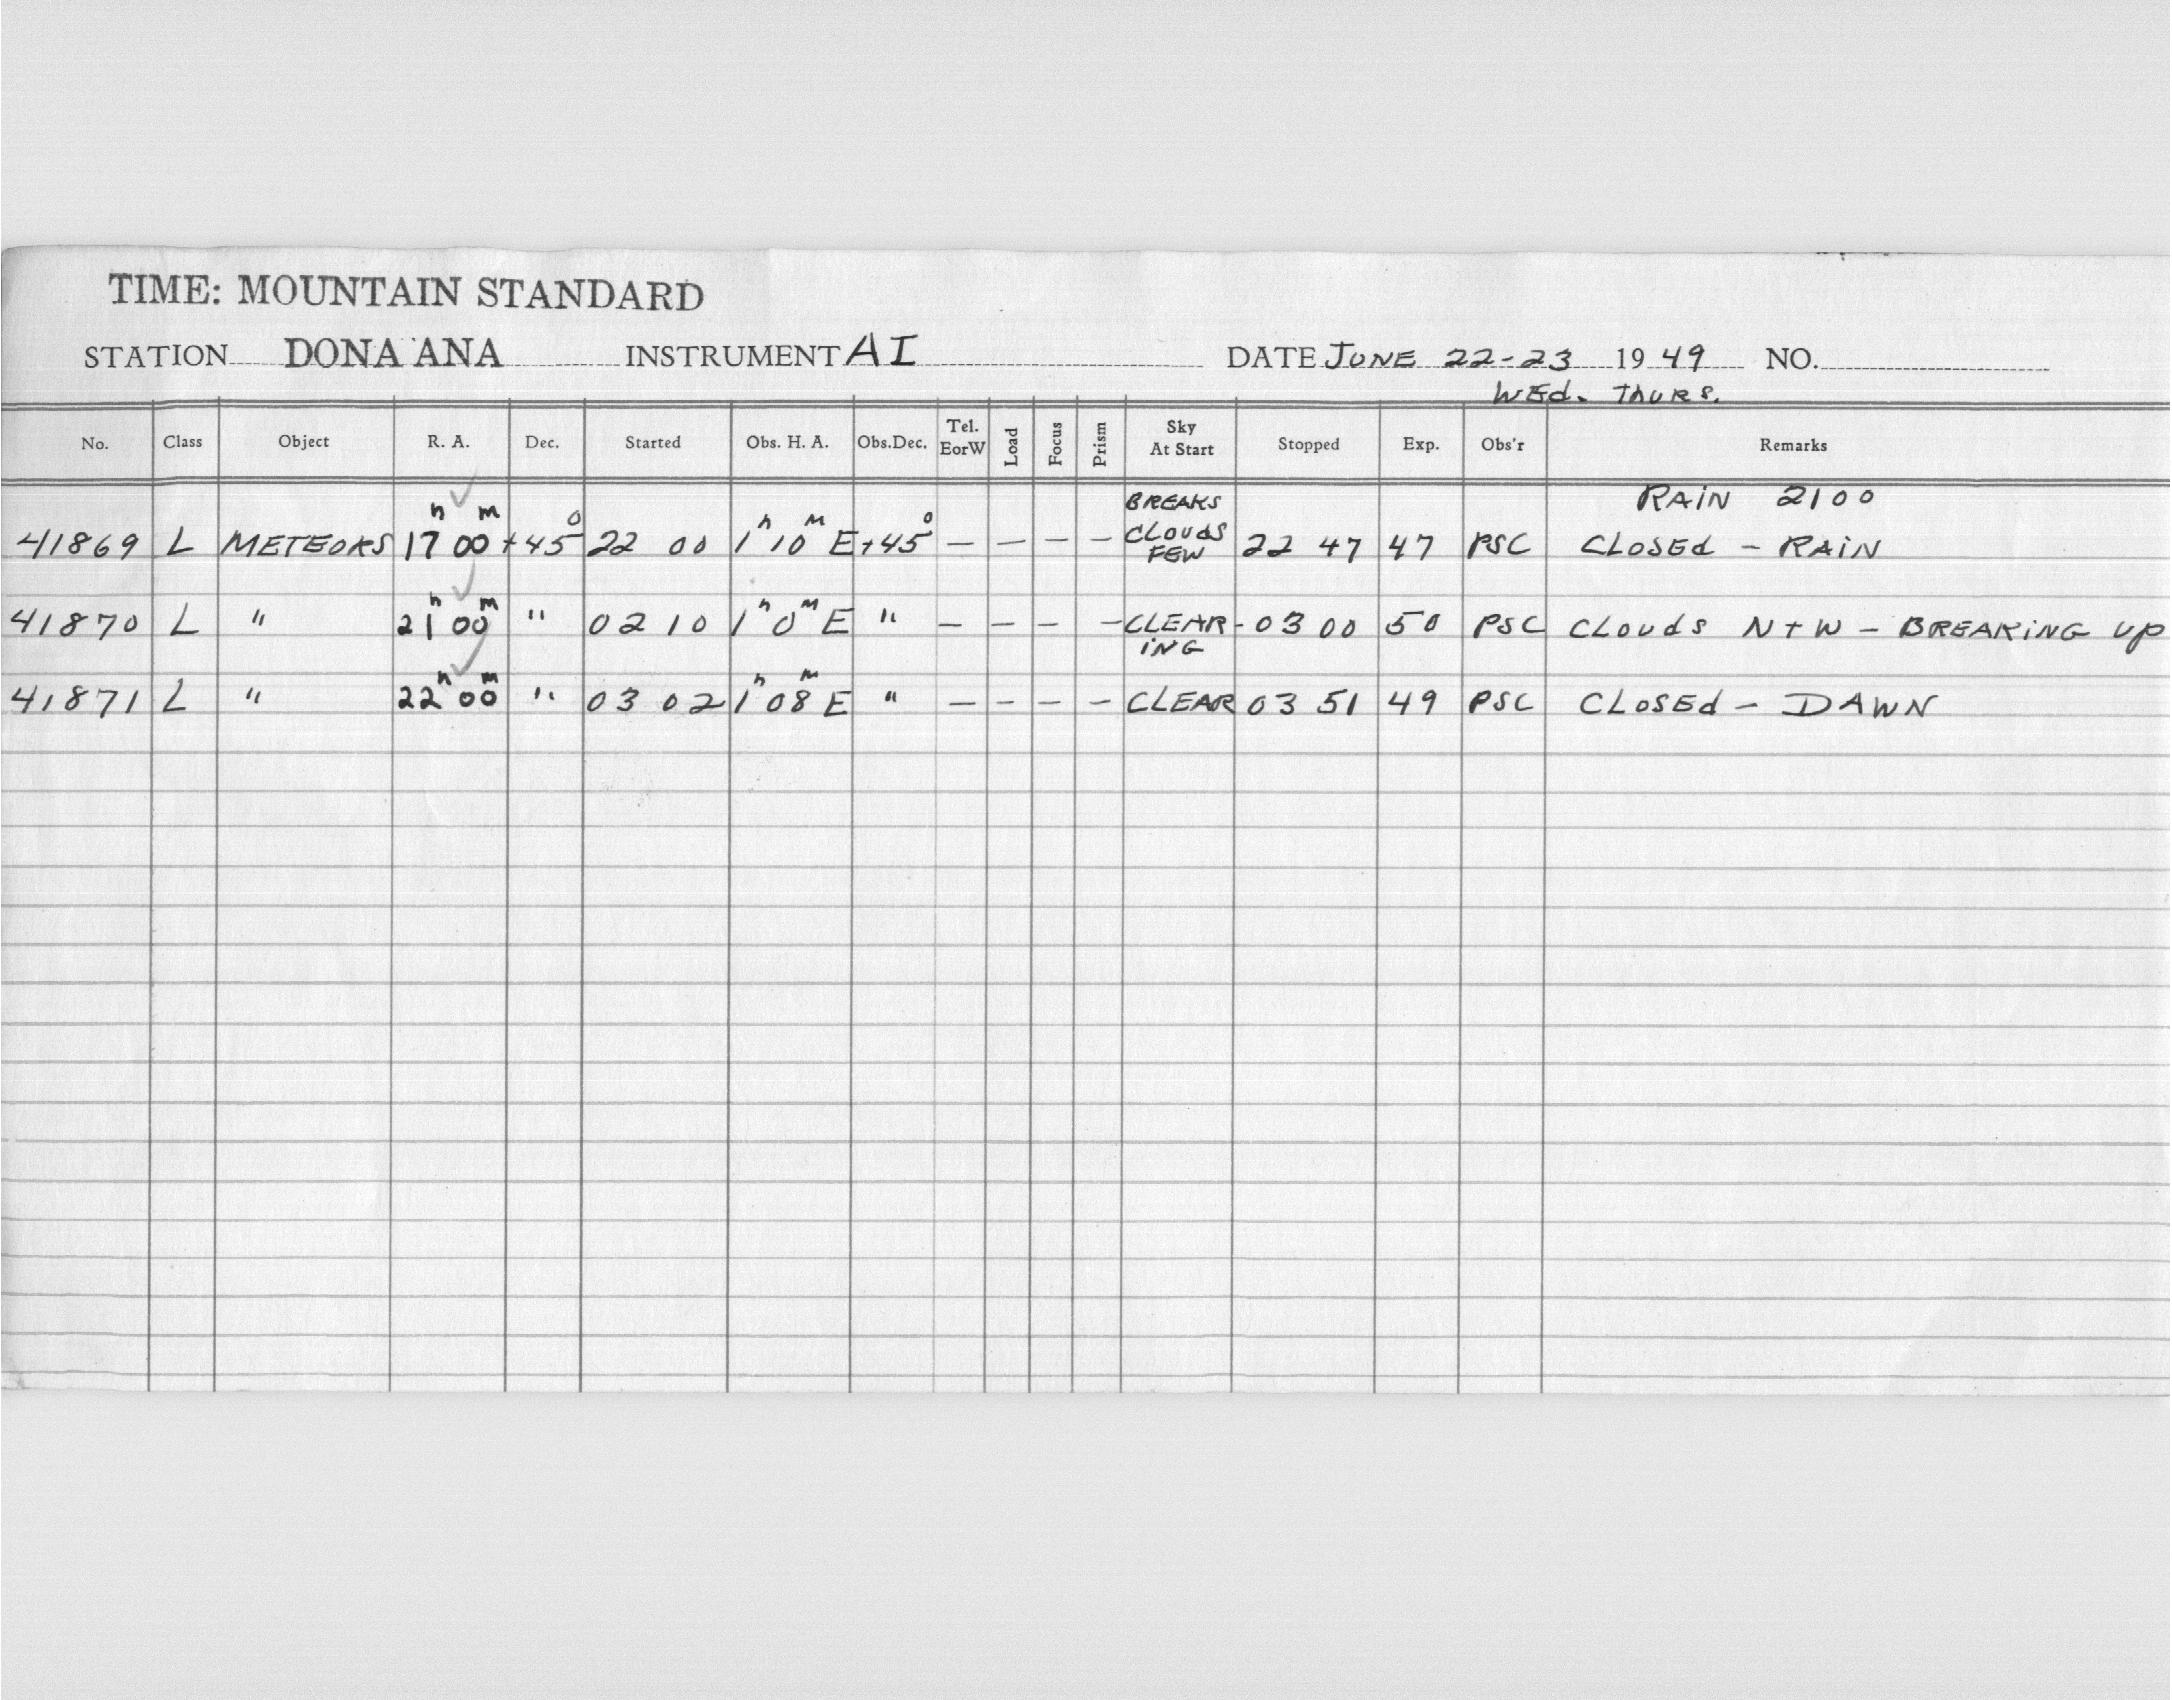 TIME: MOUNTAIN STANDARD
STATION DONA ANA INSTRUMENT AI DATE JUNE 22-23 1949 NO.
WEd. THURS.
No. Class Object R. A. Dec. Started Obs. H. A. Obs.Dec. Tel. EorW Load Focus Prism Sky At Start Stopped Exp. Obs'r Remarks
RAiN 2100
41869 L METEORS 17h 00m +45° 22 00 1h 10m E +45° — — — — BREAKS CLOUdS FEW 22 47 47 PSC CLOSEd - RAiN
41870 L " 21h 00m " 02 10 1h 0m E " — — — — CLEAR-iNG 03 00 50 PSC CLOUdS N+W - BREAKiNG UP
41871 L " 22h 00m " 03 02 1h 08m E " — — — — CLEAR 03 51 49 PSC CLOSEd - DAWN